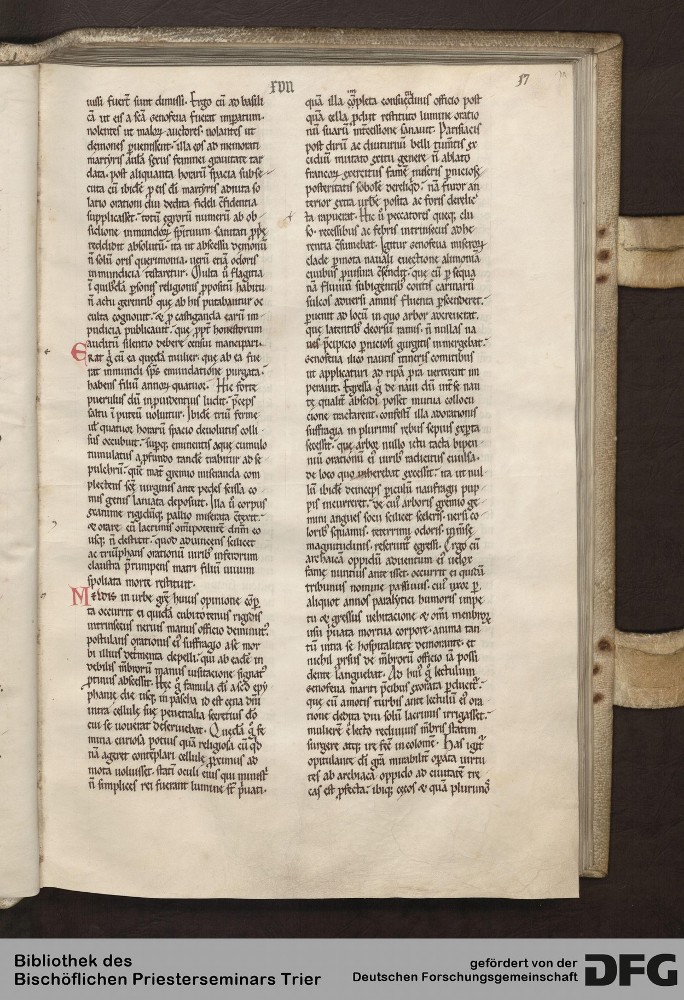 xvii
37
iussi fuerant sunt dimissi. Ergo cū ad basili
cā ut eis a scā genofeua fuerat imperatum
nolentes ut malorum auctores. nolentes ut
demones peruenissent. illa eos ad memorati
martyris aulā secus femineī grauitate tar
data. post aliquanta horarū spacia subse
cuta cū ibidē
latio orationi diu dedita fideli confidentia
supplicasset. totū egrorū numerū ab ob
sessione inmundorum spirituum sanitati
reddidit absolutū. ita ut abscessū demonū
n̄ solū oris querimonia. uerū etiā odoris
inmundicia testaretur. Multa ū flagitia
in quibusdā personis religionis propositū habitu
n̄ actu gerentibus que ab his putabantur oc
culta cognouit. & castiganda earū im
pudicia publicauit. que honestorum
auditū silentio debere censui mancipari.
Erat g cū ea quedā mulier. que ab ea fue
rat inmundi sps emundatione purgata.
habens filiū annorum quatuor. Hic forte
puerulus dū inprudentius ludit. preceps
saltu ī puteū uoluitur. Ibidē triū ferme
ul quatuor horarū spacio deuolutus colli
sus occubuit. eminentis aque cumulo
tumulatus a profundo tandē trahitur ad se
pulchrū. quē mat gremio miseranda com
plectens ante pedes scissa co
mis genis laniata deposuit. Illa ū corpus
exanime rigidūq pallio miserata
& orare cū lacrimis omipotentē dnm co
usq n̄ destitit. quod aduncens scilicet
ac triūphans orationū uirib inferorum
claustra prrumpens matri filiū uiuum
spoliata morte restituit.
Meldis in urbe
ta occurrit ei quidā cubito tenus rigidis
intrinsecus neruis manus officio deminut
postulans orationis ei suffragio a se mor
bi illius detrimenta depelli. qui ab eadē in
debilis mbrorū manus uisitatione signat
ptinus abscessit. Hec g famula di a scō epy
phanie die usq in pascha id est cena dm
intra cellule sue penetralia secretius dō
cui se uouerat deseruiebat. Quedā g fe
mina curiosa potius quā religiosa cū
nā ageret contemplari cellule proximus ad
mota uoluisset. statī oculi eius qui
n̄ simplices rei fuerant lumine st priuati.
quā illa completa consuetudinis officio post
quā cella prodiit restituto lumine oratio
nū suarū intercessione sanauit. Parisiacis
post dirū ac diuturnū belli
cidiū mutato exitu genere n̄ ablato
francorum exercitus famē miseris perniciose
posteritatis sobolē dereliqd. nā furor an
terior extra urbē posita ac foris derelic
ta rapuerat. Hic ū peccatores queq clu
so recessibus ac febris intrinsecus adhe
rentia consumebat. Igitur genofeua miserorum
clade permota nauali euectione alimonia
ciuibus puisura
nā fluuiū subigentib contis carinarū
sulcos aduersi amnis fluenta proscenderet.
puenit ad locū in quo arbor adcreuerat.
que latentib deorsū ramis. n̄ nullas na
ues percipio pernicioso gurgitis inmergebat.
Genofeua ilico nautis itineris comitibus
ut applicarent ad ripā pra uerterent im
perauit. Egressa g de naui dū int se nau
te qualit abscidi posset mutua collocu
cione tractarent. confestī illa adorationis
suffragia in plurimis rebus sepius experta
secessit. que arbor nullo ictu tacta bipen
niū orationū ei uirib radicitus euulsa.
de loco quo inherebat excessit. ita ut nul
lū ibidē deinceps periculū naufragii pup
pis incurreret. de cuius arboris gremio ge
mini angues socii scilicet sceleris. uersi co
loris squamis. teterrimi odoris.
magnitudinis. referunt egressi. Ergo cū
archiacū oppidū aduentum ei uelox
fame nuntius ante isset. occurrit ei quidā
tribunus nomine passiuus. cui uxor p
aliquot annos paralytici humoris impe
tu & gressus uehitatione & omi menbrorum
usu priuata mortua corpore. anima tan
tū intra se hospitalitate demorante. et
nichil prsus de mbrorū officio iā possi
dente languebat. Ad hui g lectulum
Genofeua mariti precibus exorata perducit.
que cū amotis turbis ante lectulū ei ora
tione dedita diu solū lacrimis irrigasset.
mulierē e lecto rediuiuis mbris statim
surgere atq ire fec incolome. Has igit
opitulante di gra mirabilit opata uirtu
tes ab archiaca oppido ad ciuitatē tre
cas est profecta. ibiq cecos & quā plurimos
Bibliothek des
Bischöflichen Priesterseminars Trier
gefördert von der
Deutschen Forschungsgemeinschaft
DFG